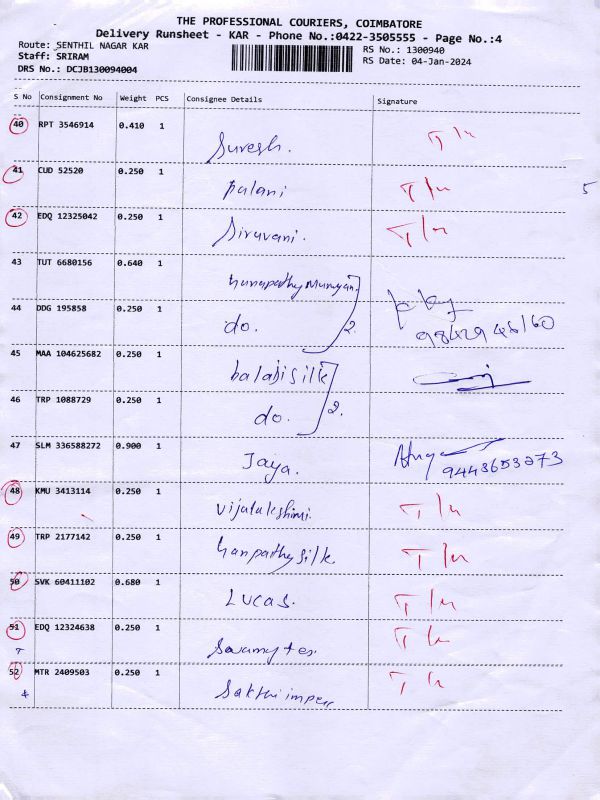 THE PROFESSIONAL COURIERS, COIMBATORE
Delivery Runsheet - KAR - Phone No.:0422-3505555 - Page No.:4
Route: SENTHIL NAGAR KAR
RS No.: 1300940
Staff: SRIRAM
RS Date: 04-Jan-2024
DRS No.: DCJB130094004
S No Consignment No Weight PCS Consignee Details Signature
40 RPT 3546914 0.410 1 Suresh. T/n
41 CUD 52520 0.250 1 Palani T/n 5
42 EDQ 12325042 0.250 1 Siruvani. T/n
43 TUT 6680156 0.640 1
44 DDG 195858 0.250 1 do. 2.
45 MAA 104625682 0.250 1 balaji silk
46 TRP 1088729 0.250 1 do. 2.
47 SLM 336588272 0.900 1 Jaya. 9443653273
48 KMU 3413114 0.250 1 Vijalakshmi. T/n
49 TRP 2177142 0.250 1 Ganpathy silk T/n
50 SVK 60411102 0.680 1 LUCAS. T/n
51 EDQ 12324638 0.250 1 T/n
52 MTR 2409503 0.250 1 Sakthi impex T/n